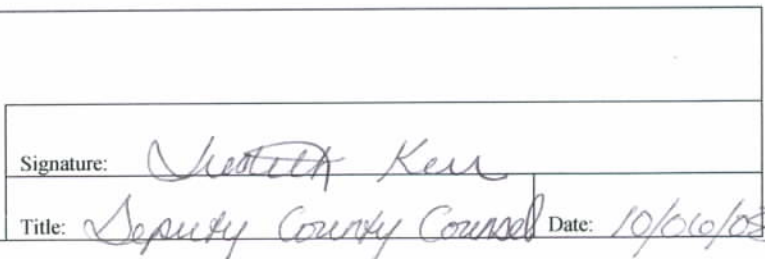 Signature: Judith Kerr
Title: Deputy County Counsel Date: 10/06/08